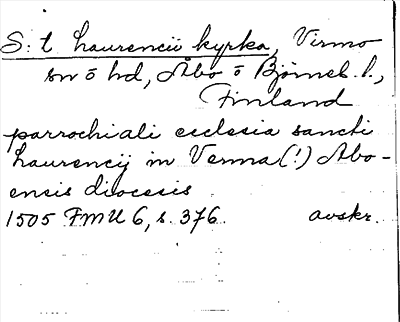 S:t Laurencii kyrka, Virmo
sn o hd, Åbo o Björneb. l.,
Finland
parrochiali ecclesia sancti
Laurencij in Verma (!) Abo-
ensis diocesis
1505 FMU 6, s. 376. avskr.